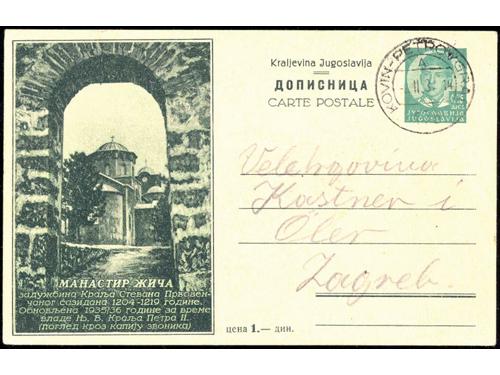 Kraljevina Jugoslavija
ДОПИСНИЦА
CARTE POSTALE
ЈУГОСЛАВИЈА
JUGOSLAVIJA
Veletrgovina
Kastner i
Öler
Zagreb.
МАНАСТИР ЖИЧА
задужбина Краља Стевана Првовен-
чаног сазидана 1204-1219 године.
Обновљена 1935/36 године за време
владе Њ. В. Краља Петра II.
(поглед кроз капију звоника)
цена 1.— дин.